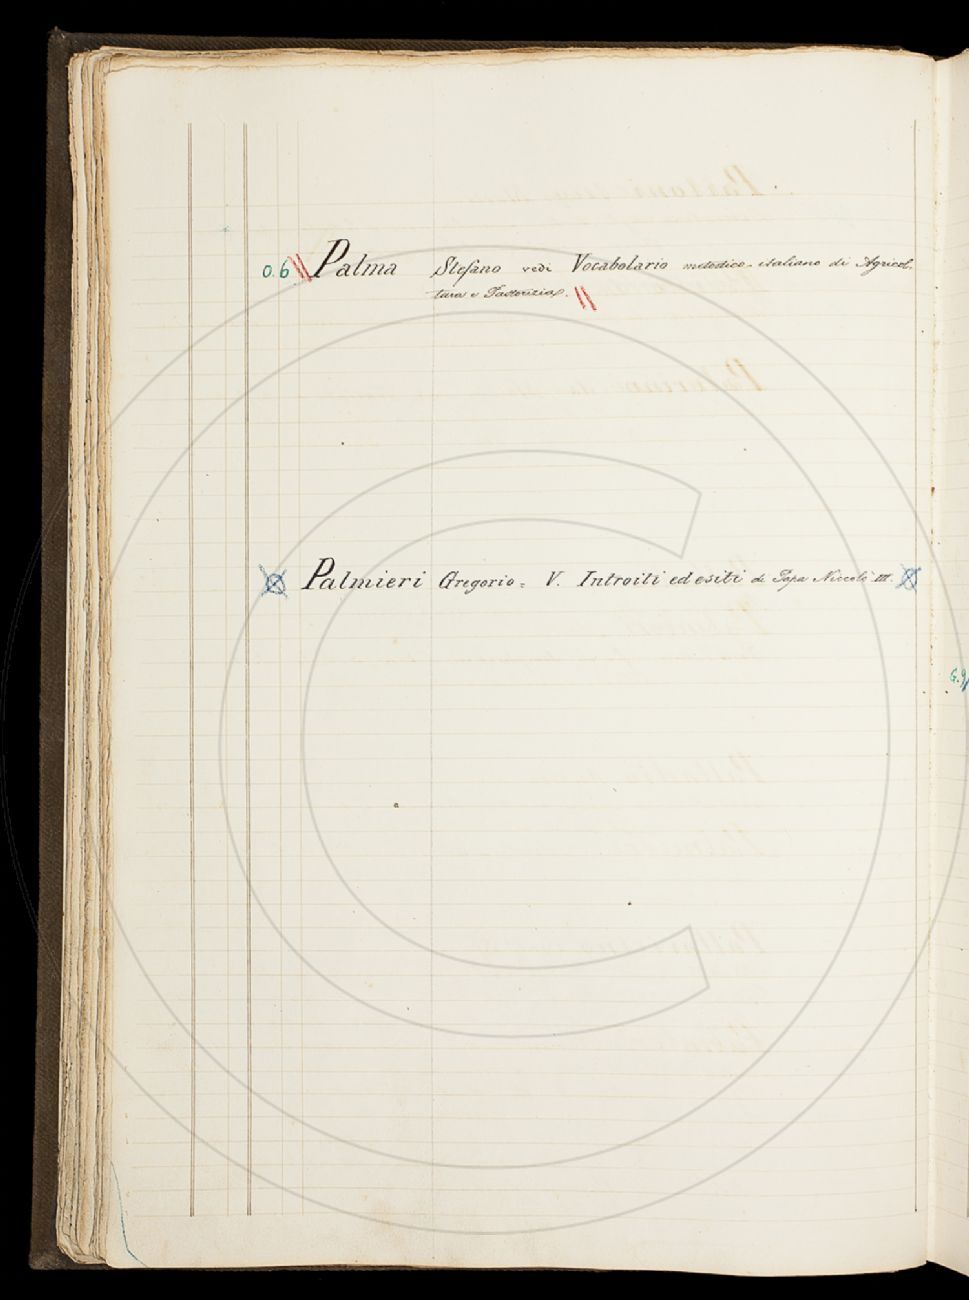 O.6 Palma Stefano vedi Vocabolario metodico-italiano di Agricol-
tura e Pastorizia.
Palmieri Gregorio = V. Introiti ed esiti di Papa Niccolò III.
G.9